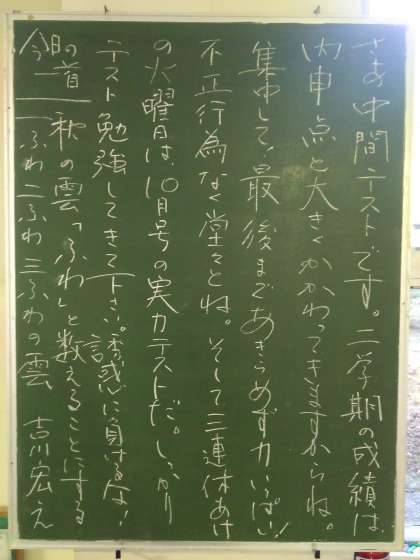 さあ中間テストです。二学期の成績は、
内申点と大きくかかわってきますからね。
集中して、最後まであきらめず力いっぱい!
不正行為なく堂々とね。そして三連休あけ
の火曜日は、10月号の実力テストだ。しっかり
テスト勉強してきて下さい。誘惑に負けるな!
今日の一首
秋の雲「ふわ」と数えることにする
一ふわ二ふわ三ふわの雲 吉川宏志